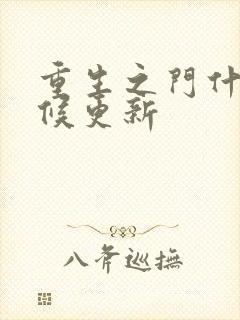 重生之門什
候更新
八斧巡撫